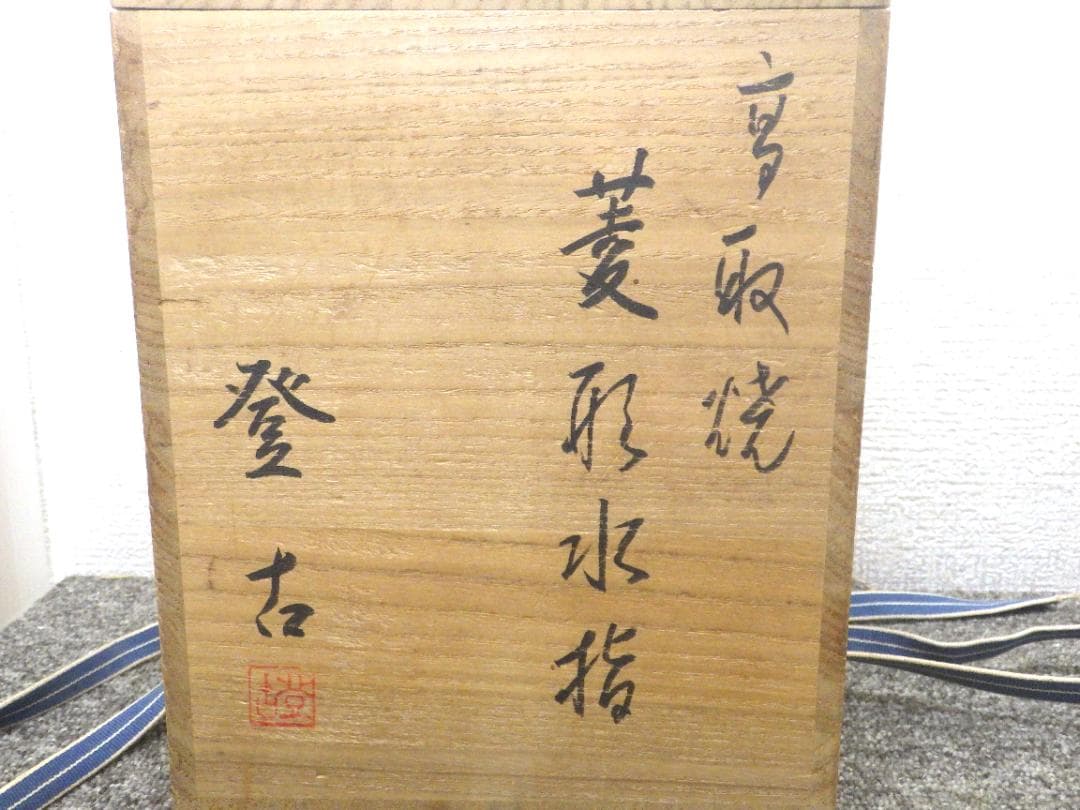 高取焼
菱形水指
登古